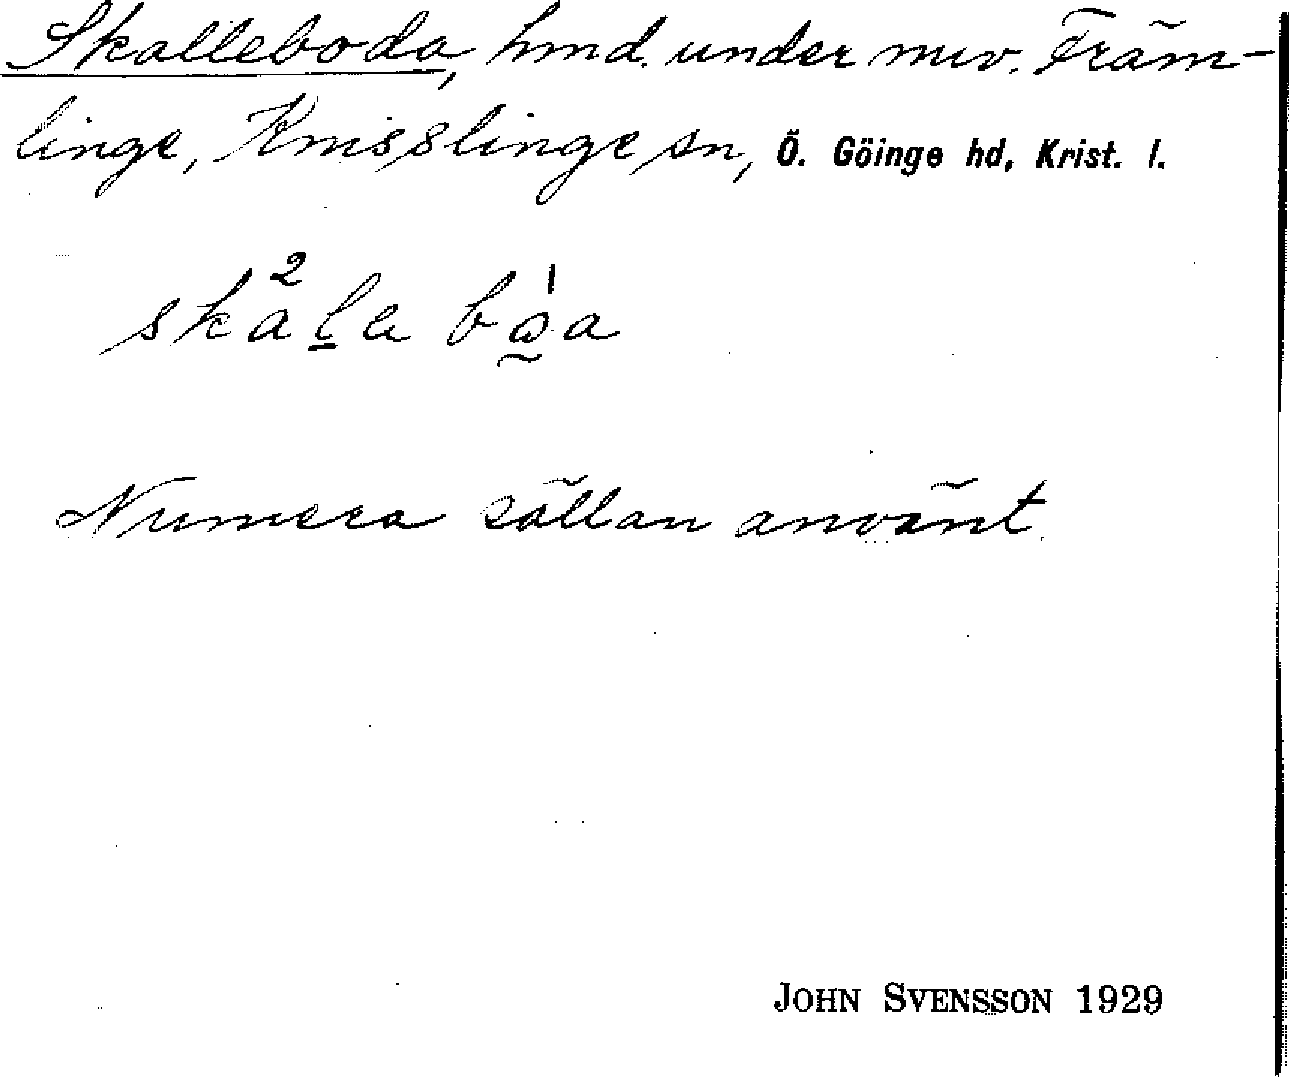 Skalleboda, hmd. under nuv. Främ-
linge, Knisslinge sn, Ö. Göinge hd, Krist. l.
Numera sällan använt.
JOHN SVENSSON 1929